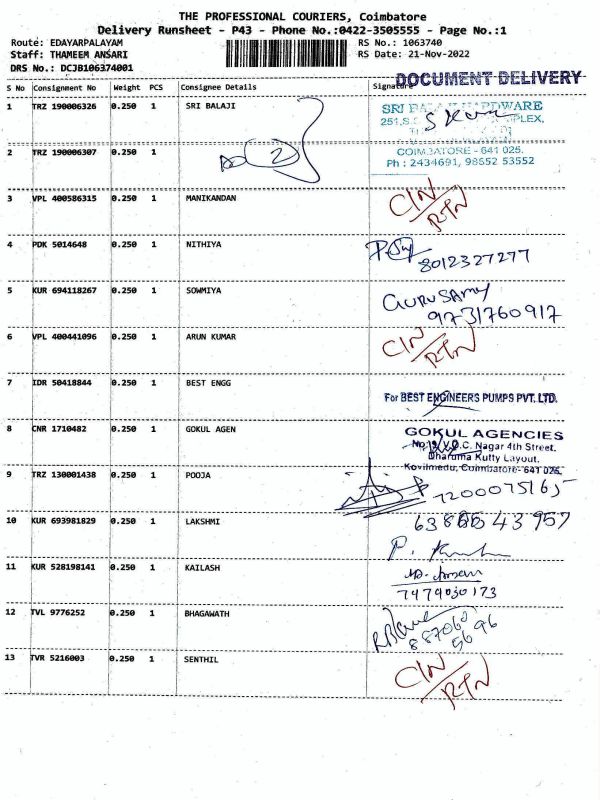 THE PROFESSIONAL COURIERS, Coimbatore
Delivery Runsheet - P43 - Phone No.:0422-3505555 - Page No.:1
Route: EDAYARPALAYAM RS No.: 1063740
Staff: THAMEEM ANSARI RS Date: 21-Nov-2022
DRS No.: DCJB106374001
DOCUMENT DELIVERY
S No Consignment No Weight PCS Consignee Details Signature
1 TRZ 190006326 0.250 1 SRI BALAJI
SRI BALAJI HARDWARE
2 TRZ 190006307 0.250 1
2
COIMBATORE - 641 025.
Ph : 2434691, 98652 53552
3 VPL 400586315 0.250 1 MANIKANDAN CIN/RTN
4 PDK 5014648 0.250 1 NITHIYA 8012327277
5 KUR 694118267 0.250 1 SOWMIYA GURUSAMY
9731760917
6 VPL 400441096 0.250 1 ARUN KUMAR CIN/RTN
7 IDR 50418844 0.250 1 BEST ENGG For BEST ENGINEERS PUMPS PVT. LTD.
8 CNR 1710482 0.250 1 GOKUL AGEN GOKUL AGENCIES
Nagar 4th Street,
Dharuma Kutty Layout,
Kovilmedu, Coimbatore- 641 025.
9 TRZ 130001438 0.250 1 POOJA 7200075165
10 KUR 693981829 0.250 1 LAKSHMI
11 KUR 528198141 0.250 1 KAILASH
7479030173
12 TVL 9776252 0.250 1 BHAGAWATH
887060
5696
13 TVR 5216003 0.250 1 SENTHIL CIN/RTN